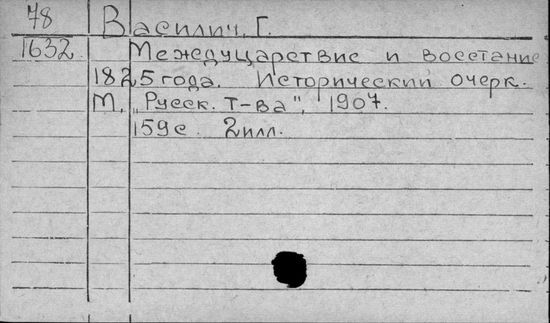 78 Василич, Г.
1632 Междуцарствие и восстание
1825 года. Исторический очерк.
М. „Русск. Т-ва", 1907.
159с. 2илл.